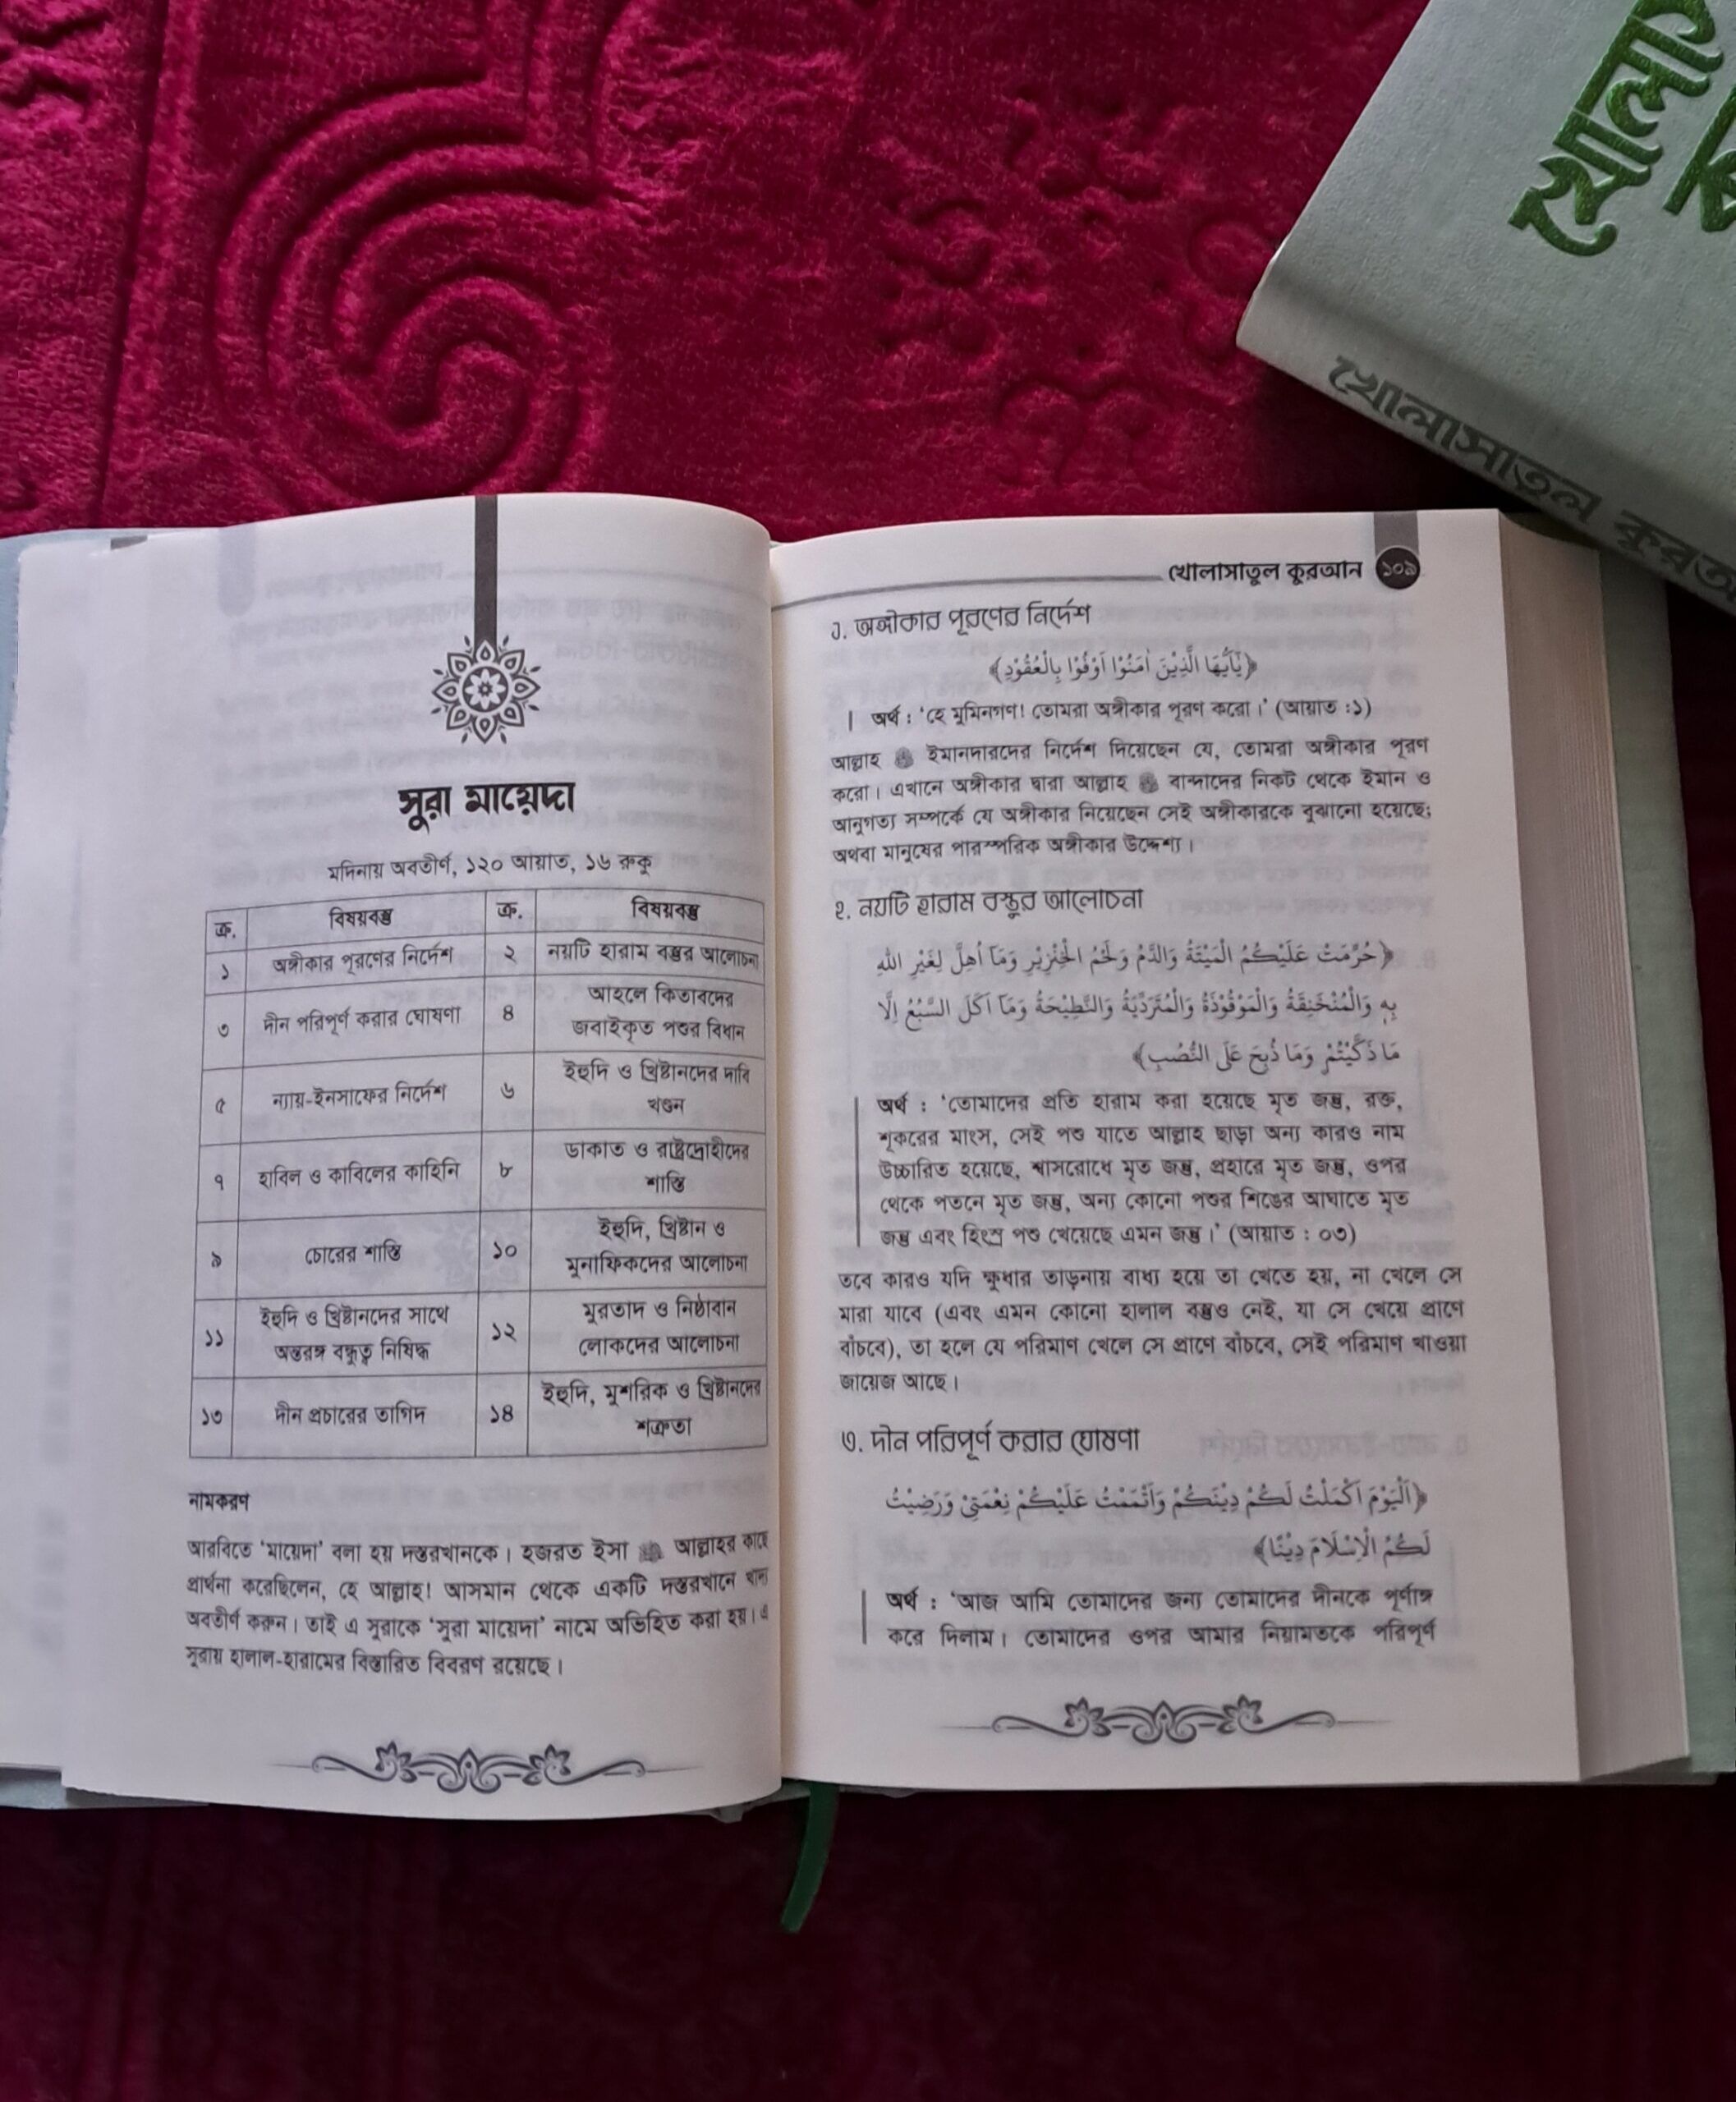 সুরা মায়েদা
মদিনায় অবতীর্ণ, ১২০ আয়াত, ১৬ রুকু
ক্র. বিষয়বস্তু ক্র. বিষয়বস্তু
১ অঙ্গীকার পূরণের নির্দেশ ২ নয়টি হারাম বস্তুর আলোচনা
৩ দীন পরিপূর্ণ করার ঘোষণা ৪ আহলে কিতাবদের
জবাইকৃত পশুর বিধান
৫ ন্যায়-ইনসাফের নির্দেশ ৬ ইহুদি ও খ্রিষ্টানদের দাবি
খণ্ডন
৭ হাবিল ও কাবিলের কাহিনি ৮ ডাকাত ও রাষ্ট্রদ্রোহীদের
শাস্তি
৯ চোরের শাস্তি ১০ ইহুদি, খ্রিষ্টান ও
মুনাফিকদের আলোচনা
১১ ইহুদি ও খ্রিষ্টানদের সাথে
অন্তরঙ্গ বন্ধুত্ব নিষিদ্ধ
১২ মুরতাদ ও নিষ্ঠাবান
লোকদের আলোচনা
১৩ দীন প্রচারের তাগিদ ১৪ ইহুদি, মুশরিক ও খ্রিষ্টানদের
শত্রুতা
নামকরণ
আরবিতে ‘মায়েদা’ বলা হয় দস্তরখানকে। হজরত ইসা আল্লাহর কাছে
প্রার্থনা করেছিলেন, হে আল্লাহ! আসমান থেকে একটি দস্তরখানে
অবতীর্ণ করুন। তাই এ সুরাকে ‘সুরা মায়েদা’ নামে অভিহিত করা হয়। এ
সুরায় হালাল-হারামের বিস্তারিত বিবরণ রয়েছে।
খোলাসাতুল কুরআন ১০৯
১. অঙ্গীকার পূরণের নির্দেশ
﴿يٰۤاَيُّهَا الَّذِيْنَ اٰمَنُوْۤا اَوْفُوْا بِالْعُقُوْدِ﴾
অর্থ : ‘হে মুমিনগণ! তোমরা অঙ্গীকার পূরণ করো।’ (আয়াত :১)
আল্লাহ ইমানদারদের নির্দেশ দিয়েছেন যে, তোমরা অঙ্গীকার পূরণ
করো। এখানে অঙ্গীকার দ্বারা আল্লাহ বান্দাদের নিকট থেকে ইমান ও
আনুগত্য সম্পর্কে যে অঙ্গীকার নিয়েছেন সেই অঙ্গীকারকে বুঝানো হয়েছে;
অথবা মানুষের পারস্পরিক অঙ্গীকার উদ্দেশ্য।
২. নয়টি হারাম বস্তুর আলোচনা
﴿حُرِّمَتْ عَلَيْكُمُ الْمَيْتَةُ وَالدَّمُ وَلَحْمُ الْخِنْزِيْرِ وَمَاۤ اُهِلَّ لِغَيْرِ اللهِ
بِهٖ وَالْمُنْخَنِقَةُ وَالْمَوْقُوْذَةُ وَالْمُتَرَدِّيَةُ وَالنَّطِيْحَةُ وَمَاۤ اَكَلَ السَّبُعُ اِلَّا
مَا ذَكَّيْتُمْ وَمَا ذُبِحَ عَلَى النُّصُبِ﴾
অর্থ : ‘তোমাদের প্রতি হারাম করা হয়েছে মৃত জন্তু, রক্ত,
শূকরের মাংস, সেই পশু যাতে আল্লাহ ছাড়া অন্য কারও নাম
উচ্চারিত হয়েছে, শ্বাসরোধে মৃত জন্তু, প্রহারে মৃত জন্তু, ওপর
থেকে পতনে মৃত জন্তু, অন্য কোনো পশুর শিঙের আঘাতে মৃত
জন্তু এবং হিংস্র পশু খেয়েছে এমন জন্তু।’ (আয়াত : ০৩)
তবে কারও যদি ক্ষুধার তাড়নায় বাধ্য হয়ে তা খেতে হয়, না খেলে সে
মারা যাবে (এবং এমন কোনো হালাল বস্তুও নেই, যা সে খেয়ে প্রাণে
বাঁচবে), তা হলে যে পরিমাণ খেলে সে প্রাণে বাঁচবে, সেই পরিমাণ খাওয়া
জায়েজ আছে।
৩. দীন পরিপূর্ণ করার ঘোষণা
﴿اَلْيَوْمَ اَكْمَلْتُ لَكُمْ دِيْنَكُمْ وَاَتْمَمْتُ عَلَيْكُمْ نِعْمَتِيْ وَرَضِيْتُ
لَكُمُ الْاِسْلَامَ دِيْنًا﴾
অর্থ : ‘আজ আমি তোমাদের জন্য তোমাদের দীনকে পূর্ণাঙ্গ
করে দিলাম। তোমাদের ওপর আমার নিয়ামতকে পরিপূর্ণ
খোলাসাতুল